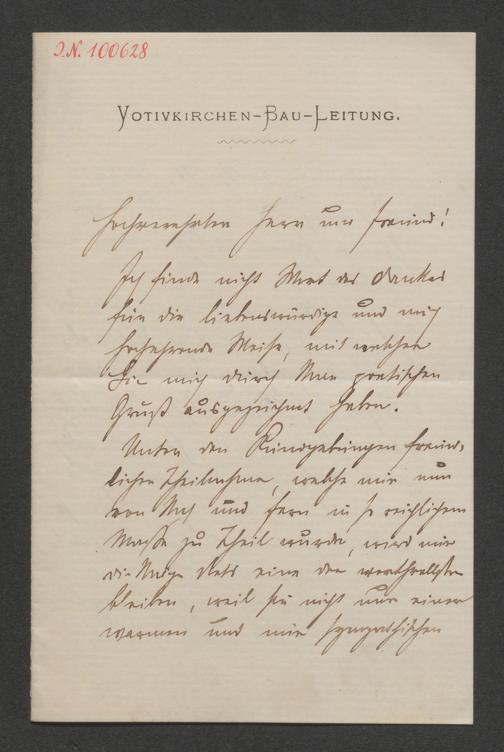 I.N. 100628
VOTIVKIRCHEN-BAU-LEITUNG.
Hochverehrter Herr und Freund!
Ich finde nicht Worte des Dankes
für die liebenswürdige und mich
hochehrende Weise, mit welcher
Sie mich durch Ihren poetischen
Gruß ausgezeichnet haben.
Unter den Kundgebungen freund-
licher Theilnahme, welche mir nun
von Nah und Fern in so reichlichem
Maße zu Theil wurde, wird mir
die Ihrige stets eine der werthvollsten
bleiben, weil sie nicht nur einen
warmen und mir sympathischen